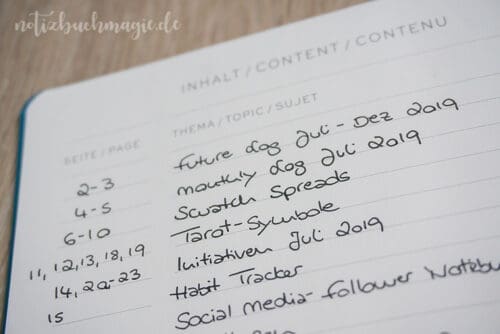 notizbuchmagie.de
INHALT / CONTENT / CONTENU
SEITE / PAGE THEMA / TOPIC / SUJET
2-3 Future Log Juli - Dez 2019
4-5 monthly Log Juli 2019
6-10 Scratch Spreads
11, 12, 13, 18, 19 Tarot-Symbole
14, 20-23 Initiativen Juli 2019
15 Habit Tracker
Social media-Follower